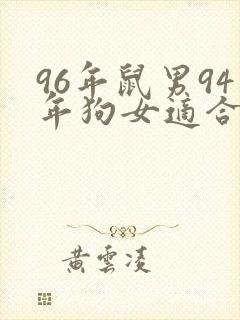 96年鼠男94
年狗女適合
黃雲凌